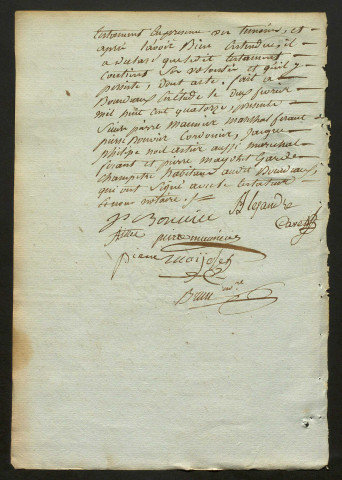 testament en presence des temoins, et
après l'avoir bien entendu, il
a declaré que ledit testament
contient ses volontés et qu'il y
persiste, dont acte, fait à
Bourdeaux en l'etude le deux fevrier
mil huit cent quatorze, presents
sieurs pierre maunier marechal ferant
pierre Bouvier Cordonier, Jacque
philipe noel astier aussi marechal
ferant et pierre magothet Garde
champetre habitants audit Bourdeaux,
qui ont signé avec le testateur
et nous notaire./.
P Bouvier Alexandre
Astier pierre maunier
pierre
Brun n.re